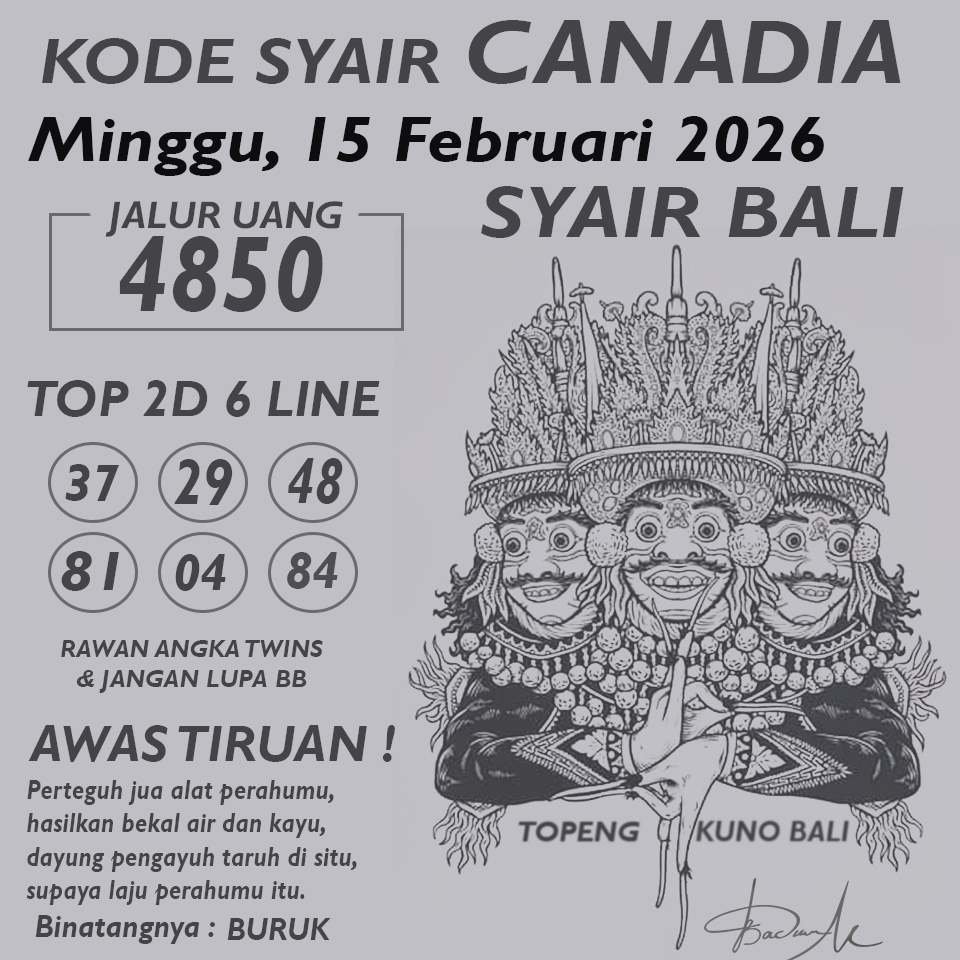 KODE SYAIR CANADIA
Minggu, 15 Februari 2026
SYAIR BALI
JALUR UANG
4850
TOP 2D 6 LINE
37 29 48
81 04 84
RAWAN ANGKA TWINS
& JANGAN LUPA BB
AWAS TIRUAN !
Perteguh jua alat perahumu,
hasilkan bekal air dan kayu,
dayung pengayuh taruh di situ,
supaya laju perahumu itu.
Binatangnya : BURUK
TOPENG KUNO BALI